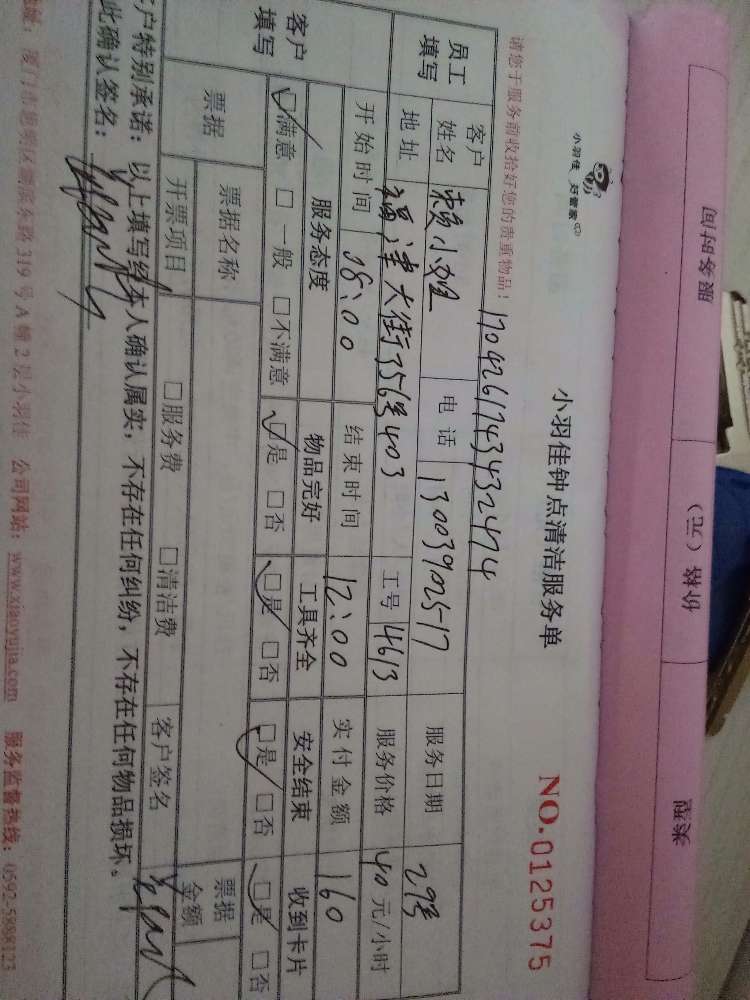 服务时间
价格（元）
累计
小羽佳 好管家
小羽佳钟点清洁服务单
NO.0125375
请您于服务前收拾好您的贵重物品！
1704261743432474
员工填写
客户姓名 赖小姐 电话 13003902517 服务日期 29号
地址 福津大街756号403 工号 4613 服务价格 40元/小时
开始时间 08:00 结束时间 12:00 实付金额 160
客户填写
服务态度 物品完好 工具齐全 安全结束 收到卡片
☑满意 □一般 □不满意 ☑是 □否 ☑是 □否 ☑是 □否 ☑是 □否
票据 票据名称 票据金额
开票项目 □服务费 □清洁费 客户签名
户特别承诺：以上填写经本人确认属实，不存在任何纠纷，不存在任何物品损坏。
此确认签名：
319号A幢2层小羽佳 公司网站：www.xiaoyujia.com 服务监督热线：0592-5888123